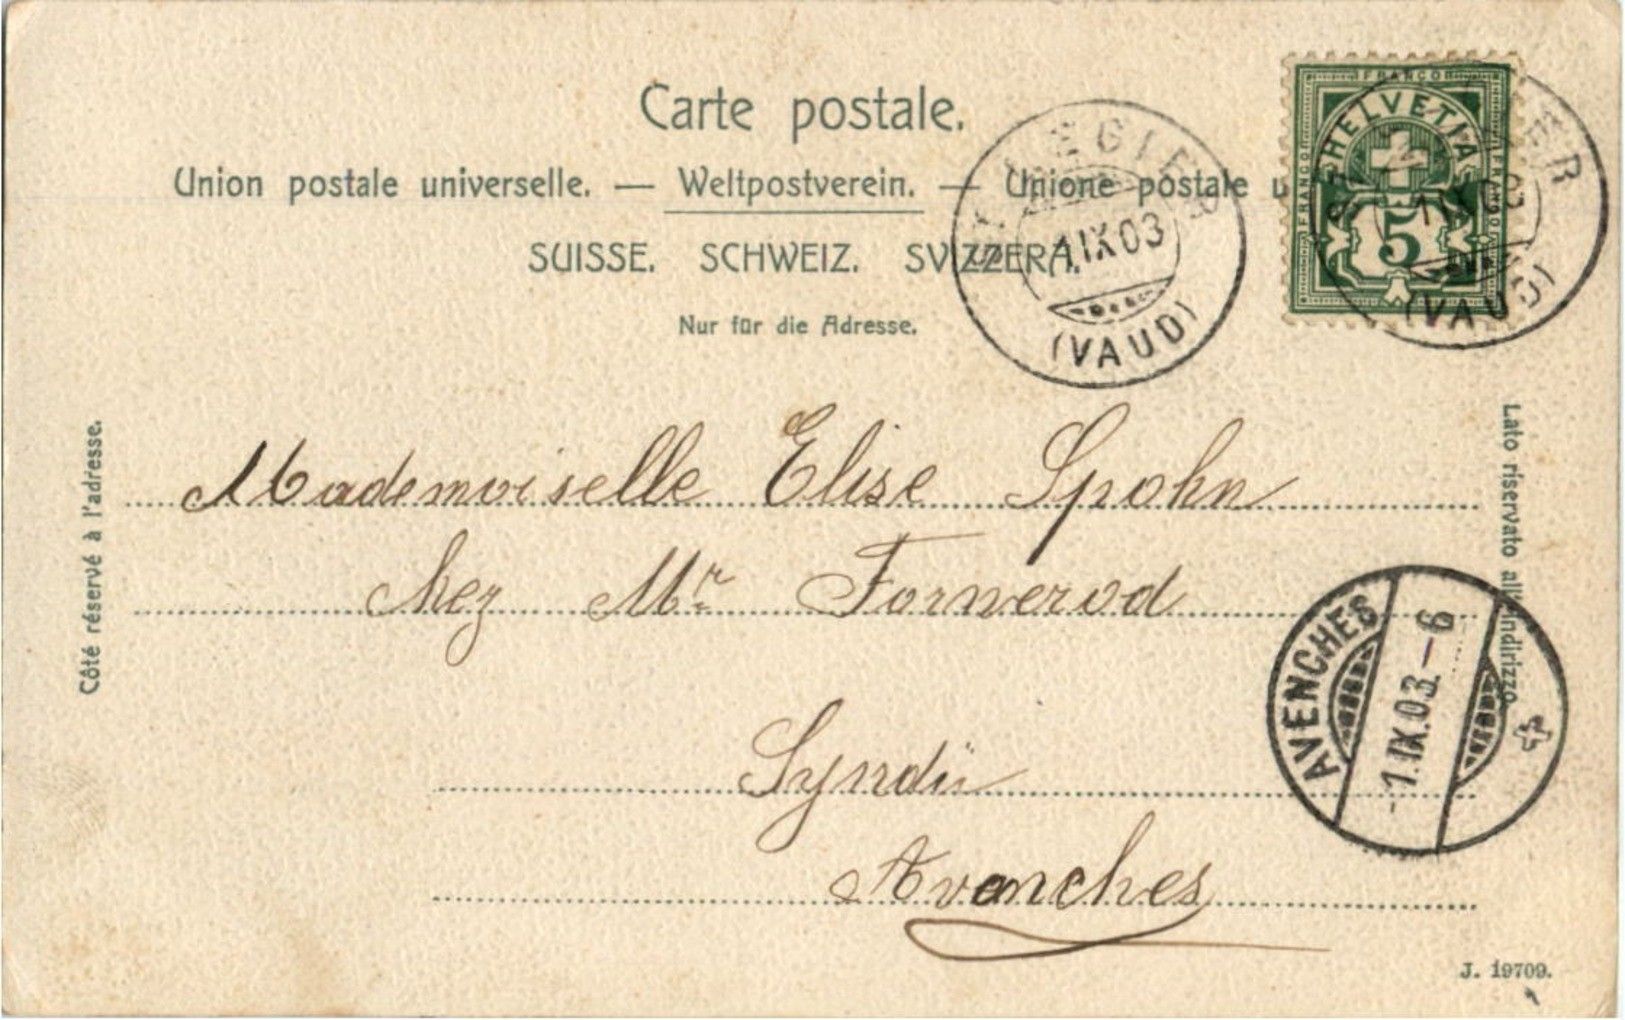 Carte postale.
Union postale universelle. — Weltpostverein. — Unione postale u
SUISSE. SCHWEIZ. SVIZZERA.
Nur für die Adresse.
1.IX.03
(VAUD)
FRANCO
HELVETIA
FRANCO
FRANCO
5
1.IX.03
(VAUD)
Côté réservé à l'adresse.
Mademoiselle Elise Spohn
chez Mr Fornerod
Syndic
Avenches
Lato riservato all'indirizzo.
AVENCHES
-1.IX.03.-6
J. 19709.